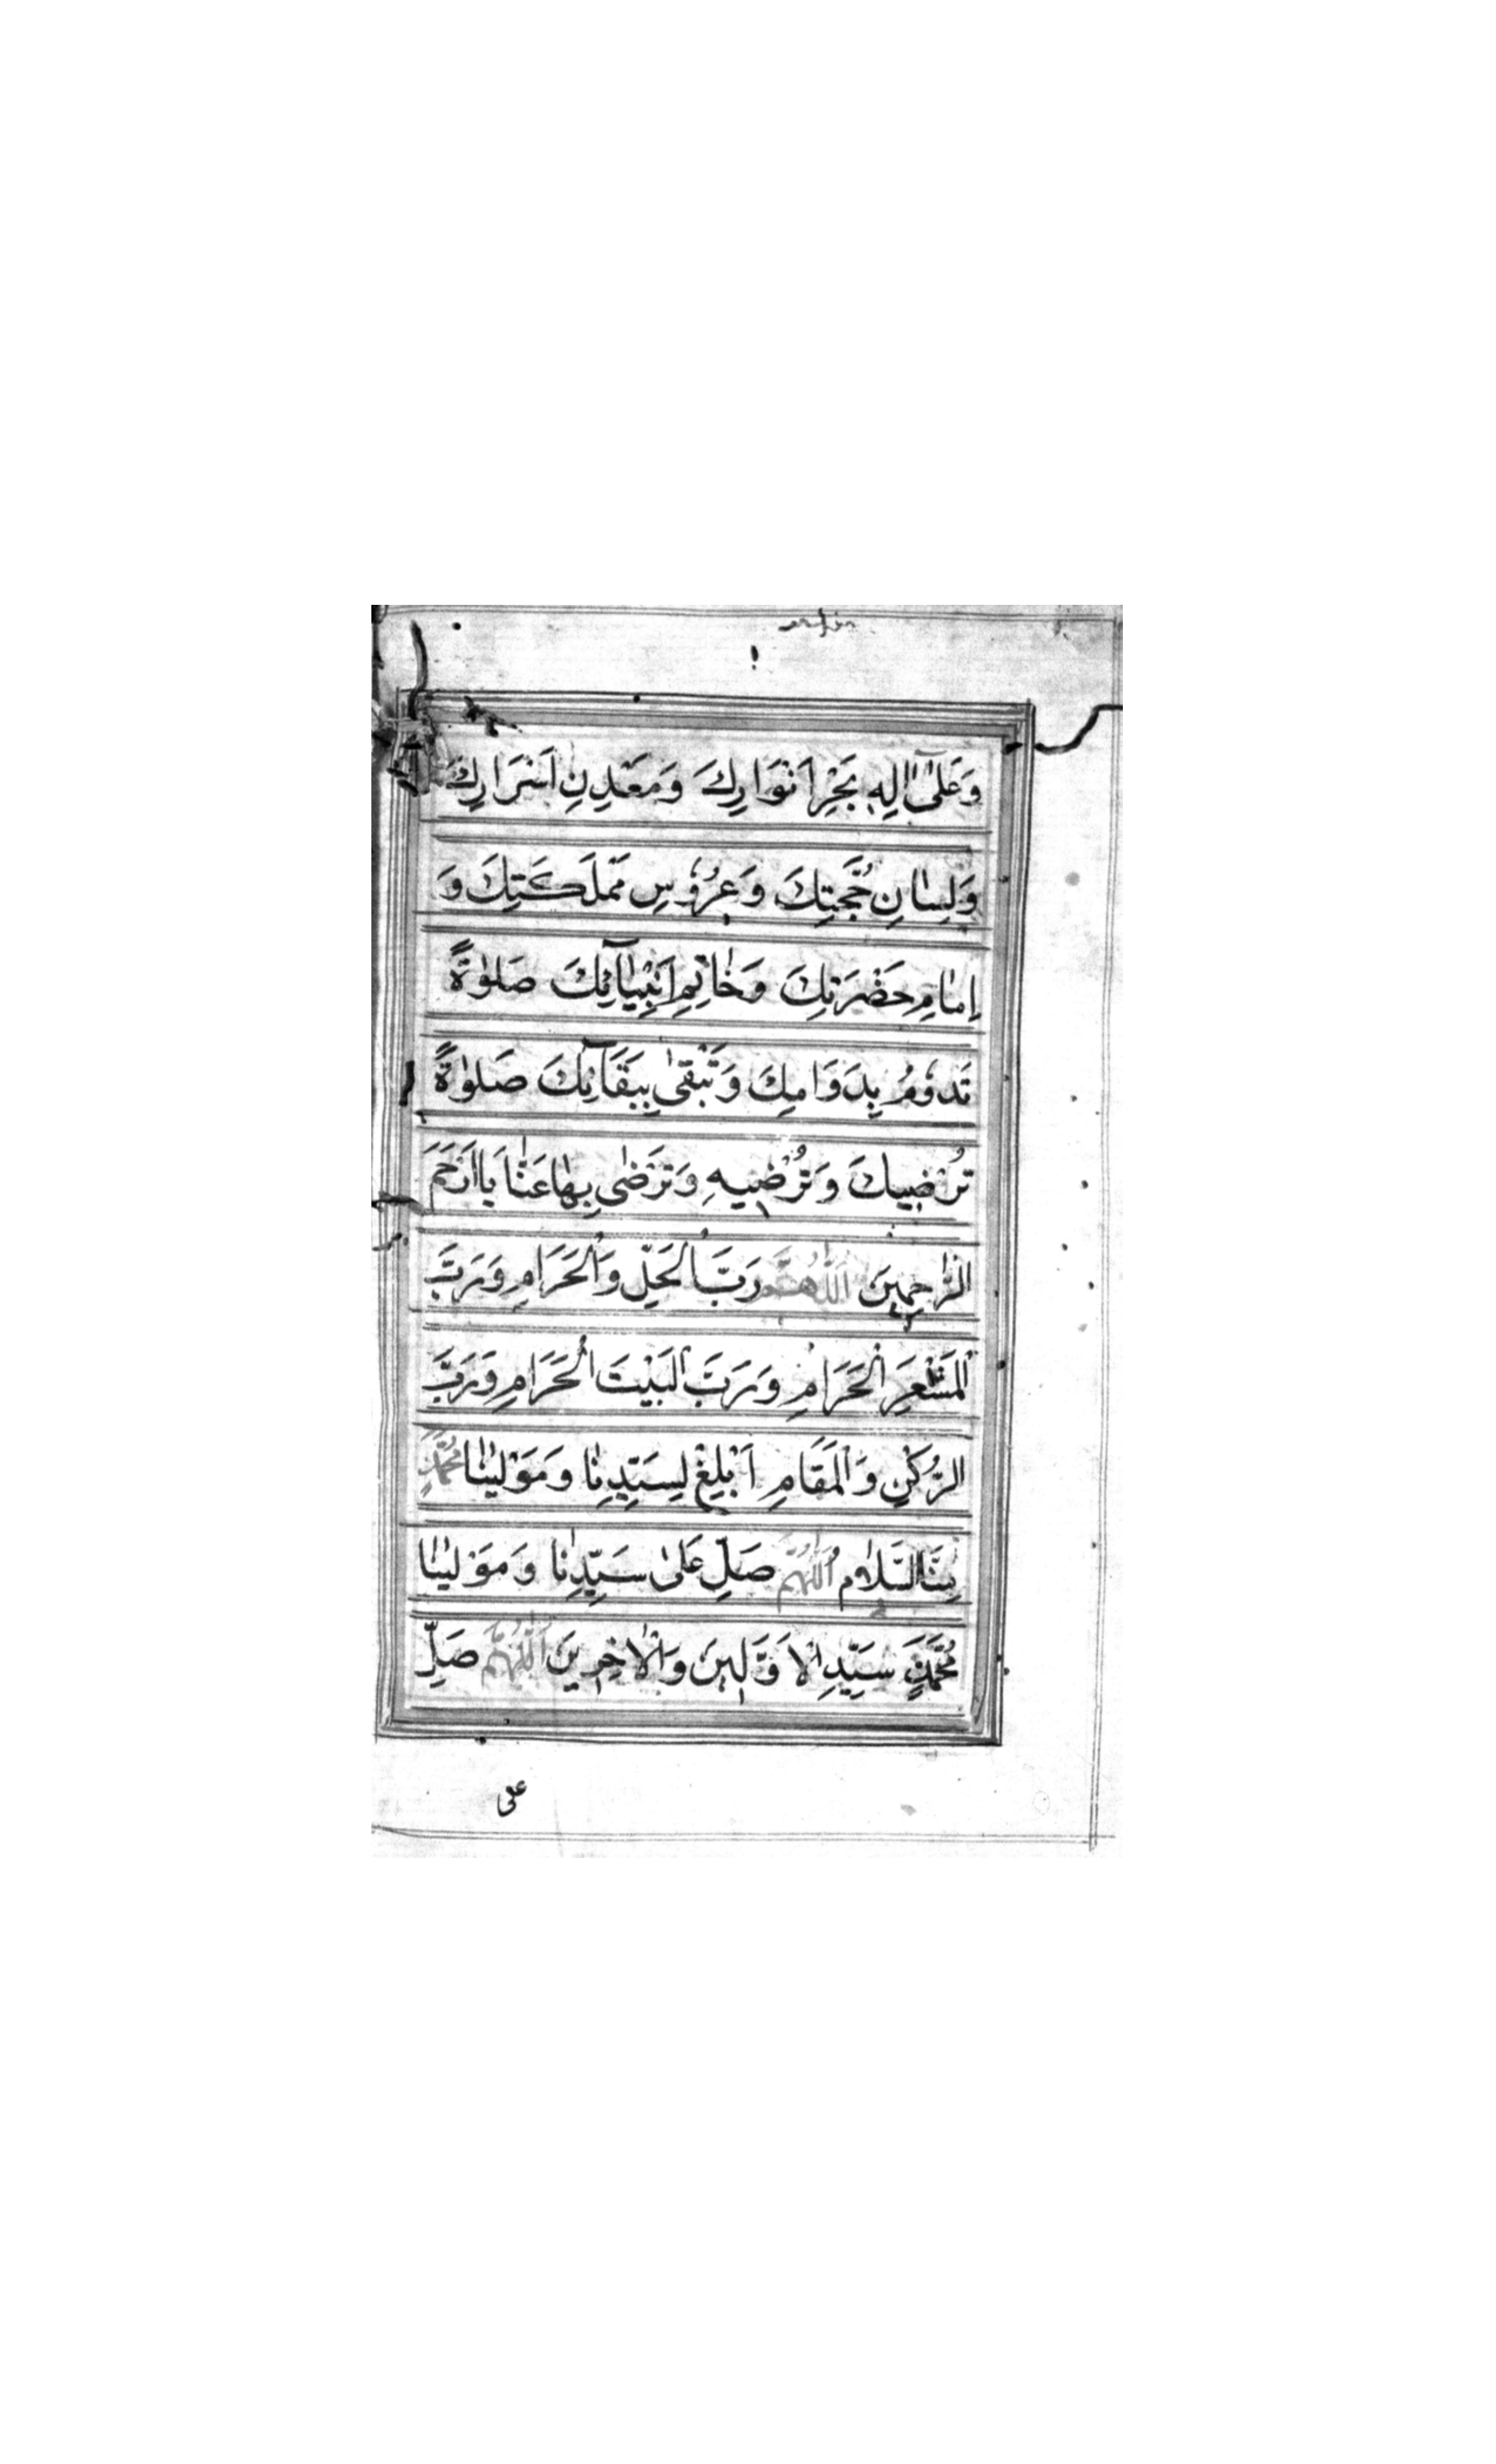 وَعَلٰٓى اٰلِهٖ بَحْرِ اَنْوَارِكَ وَمَعْدِنِ اَسْرَارِكَ
وَلِسٰانِ حُجَّتِكَ وَعَرُوْسِ مَمْلَكَتِكَ وَ
اِمٰامِ حَضْرَتِكَ وَخٰاتِمِ اَنْبِيٰآئِكَ صَلٰوةً
تَدُوْمُ بِدَوَامِكَ وَتَبْقٰى بِبَقَآئِكَ صَلٰوةً
تُرْضِيكَ وَتُرْضِيهِ وَتَرْضٰى بِهٰا عَنّٰا يَا اَرْحَمَ
الرّٰاحِمِينَ اَللّٰهُمَّ رَبَّ الْحَلِّ وَالْحَرَامِ وَرَبَّ
الْمَشْعَرِ الْحَرَامِ وَرَبَّ الْبَيْتَ الْحَرَامِ وَرَبَّ
الرُّكْنِ وَالْمَقَامِ اَبْلِغْ لِسَيِّدِنٰا وَمَوْلٰينٰا مُحَمَّدٍ
مِنَّا السَّلَامَ اَللّٰهُمَّ صَلِّ عَلىٰ سَيِّدِنٰا وَمَوْلٰينٰا
مُحَمَّدٍ سَيِّدِ الْاَوَّلِينَ وَالْاٰخِرِينَ اَللّٰهُمَّ صَلِّ
على